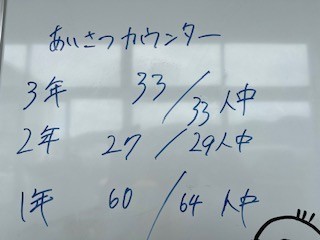 あいさつカウンター
3年 33/33人中
2年 27/29人中
1年 60/64人中